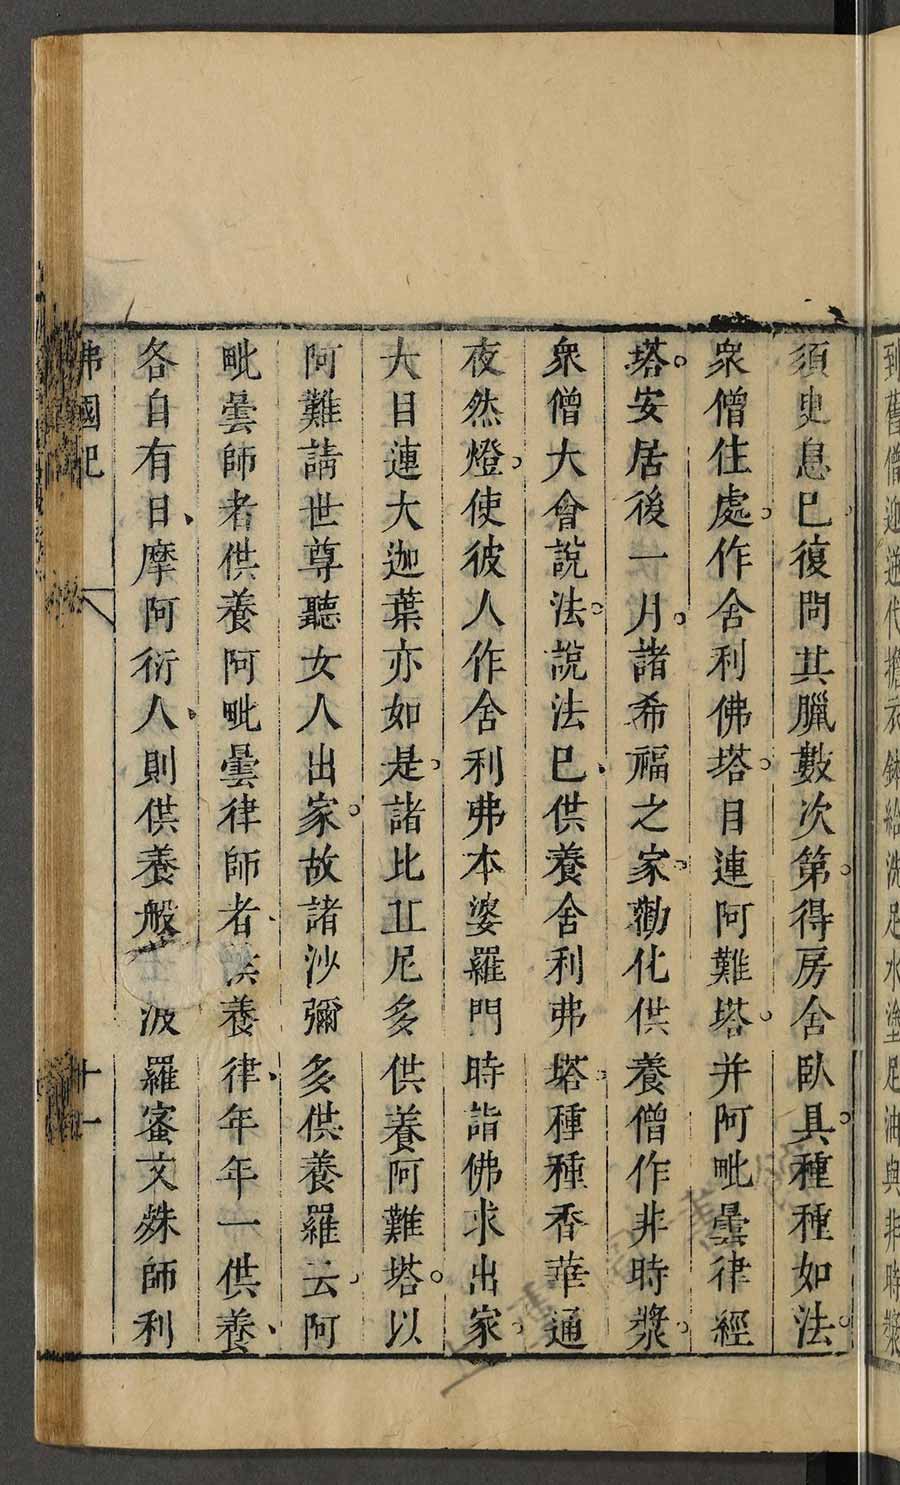 到舊僧迎逆代擔衣鉢給洗足水塗足油與非時漿
須臾息已復問其臘數次第得房舍臥具種種如法
衆僧住處作舍利佛塔目連阿難塔并阿毗曇律經
塔安居後一月諸希福之家勸化供養僧作非時漿
衆僧大會說法說法已供養舍利弗塔種種香華通
夜然燈使彼人作舍利弗本婆羅門時詣佛求出家
大目連大迦葉亦如是諸比丘尼多供養阿難塔以
阿難請世尊聽女人出家故諸沙彌多供養羅云阿
毗曇師者供養阿毗曇律師者供養律年年一供養
各自有日摩阿衍人則供養般波羅蜜文殊師利
佛國記
十一